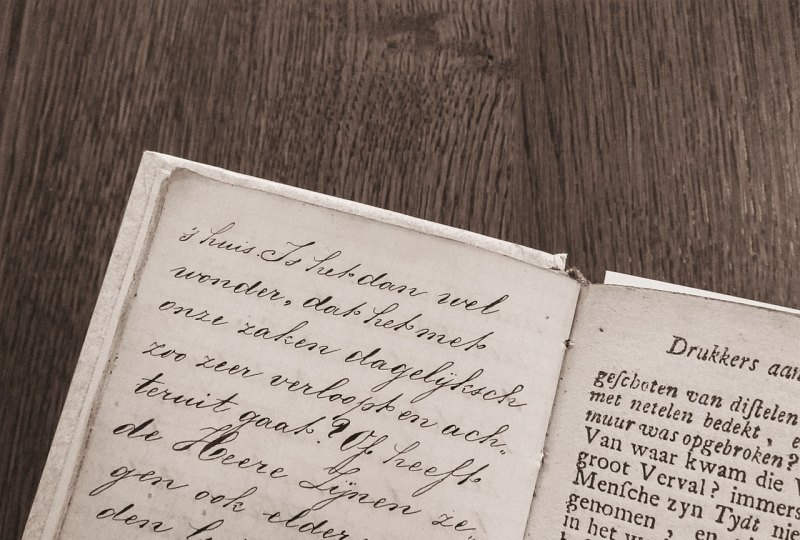 's huis. Is het dan wel
wonder, dat het met
onze zaken dagelijksch
zoo zeer verloopt en ach„
teruit gaat? Of heeft
de Heere Zijnen ze„
gen ook elder
den
Drukkers aan
geſchoten van diſtelen
met netelen bedekt, e
muur was opgebroken?
Van waar kwam die V
groot Verval? immers
Menſche zyn Tydt nie
genomen, en
in het